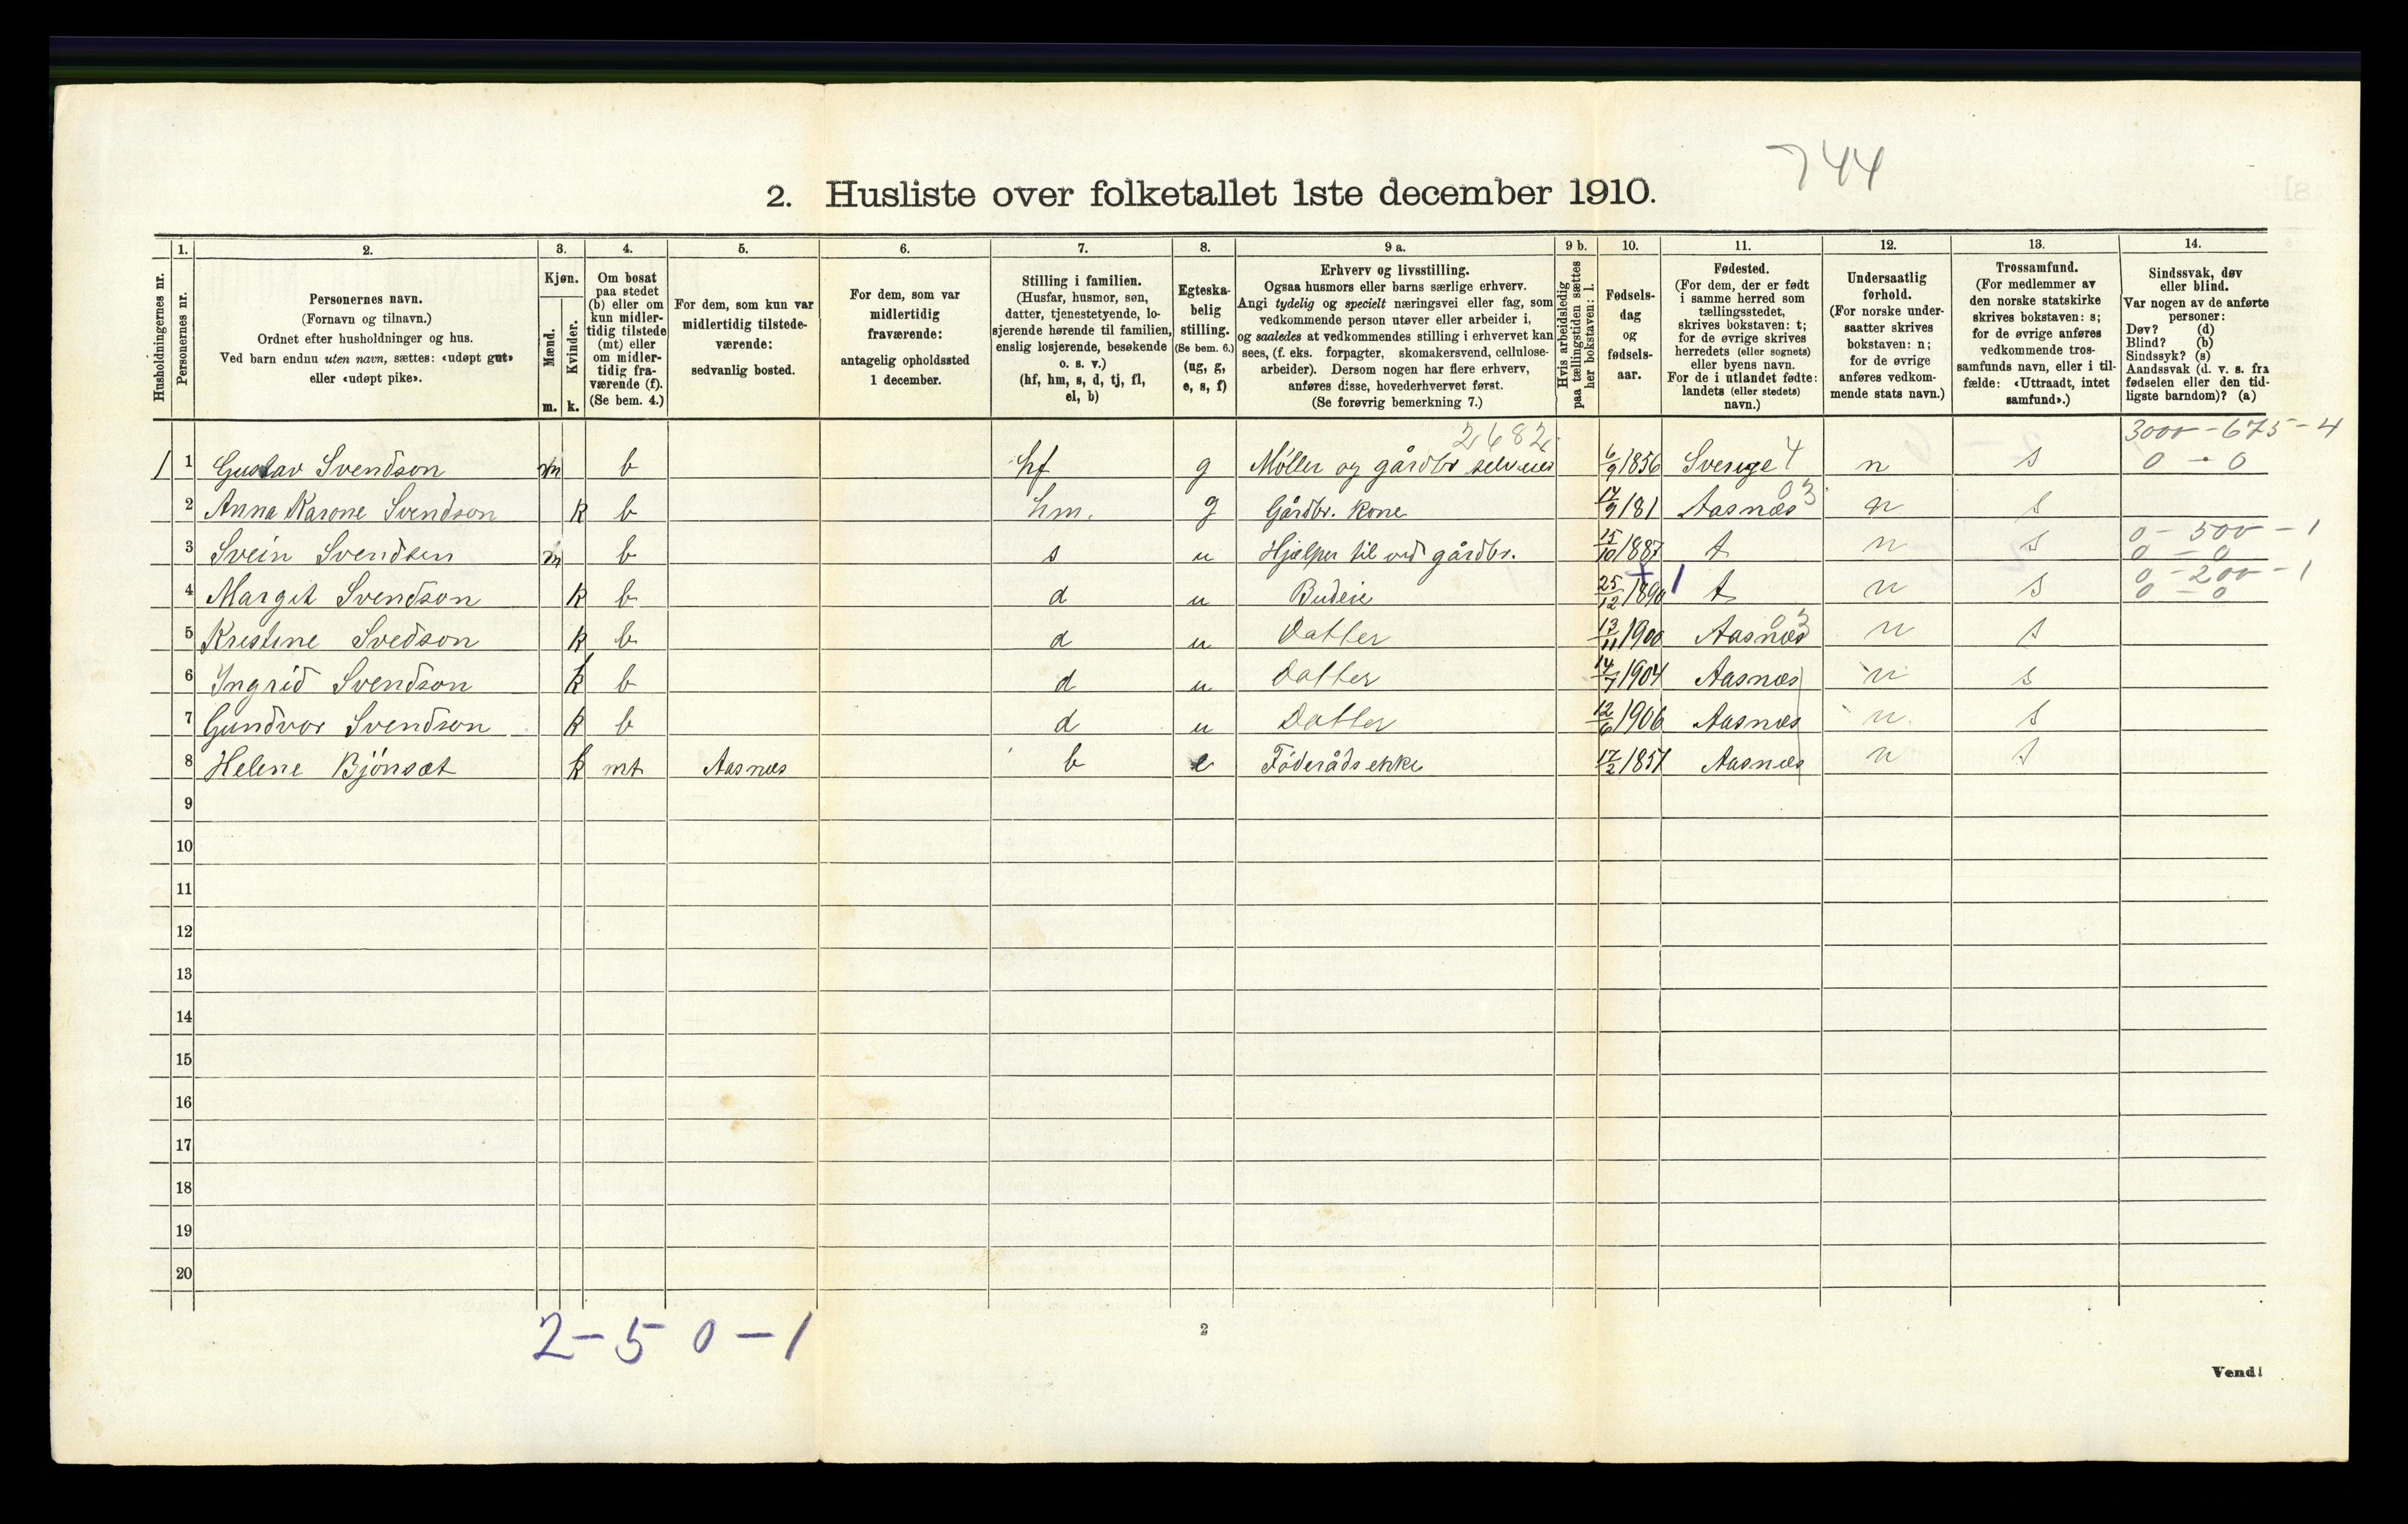 744
2. Husliste over folketallet 1ste december 1910.
Husholdningernes nr.
1. Personernes nr.
2. Personernes navn. (Fornavn og tilnavn.) Ordnet efter husholdninger og hus. Ved barn endnu uten navn, sættes: «udøpt gut» eller «udøpt pike».
3. Kjøn. Mænd. m. Kvinder. k.
4. Om bosat paa stedet (b) eller om kun midlertidig tilstede (mt) eller om midlertidig fraværende (f). (Se bem. 4.)
5. For dem, som kun var midlertidig tilstedeværende: sedvanlig bosted.
6. For dem, som var midlertidig fraværende: antagelig opholdssted 1 december.
7. Stilling i familien. (Husfar, husmor, søn, datter, tjenestetyende, losjerende hørende til familien, enslig losjerende, besøkende o. s. v.) (hf, hm, s, d, tj, fl, el, b)
8. Egteskabelig stilling. (Se bem. 6.) (ug, g, e, s, f)
9 a. Erhverv og livsstilling. Ogsaa husmors eller barns særlige erhverv. Angi tydelig og specielt næringsvei eller fag, som vedkommende person utøver eller arbeider i, og saaledes at vedkommendes stilling i erhvervet kan sees, (f. eks. forpagter, skomakersvend, cellulosearbeider). Dersom nogen har flere erhverv, anføres disse, hovederhvervet først. (Se forøvrig bemerkning 7.)
9 b. Hvis arbeidsledig paa tællingstiden sættes her bokstaven: l.
10. Fødselsdag og fødselsaar.
11. Fødested. (For dem, der er født i samme herred som tællingsstedet, skrives bokstaven: t; for de øvrige skrives herredets (eller sognets) eller byens navn. For de i utlandet fødte: landets (eller stedets) navn.)
12. Undersaatlig forhold. (For norske undersaatter skrives bokstaven: n; for de øvrige anføres vedkommende stats navn.)
13. Trossamfund. (For medlemmer av den norske statskirke skrives bokstaven: s; for de øvrige anføres vedkommende trossamfunds navn, eller i tilfælde: «Uttraadt, intet samfund».)
14. Sindssvak, døv eller blind. Var nogen av de anførte personer: Døv? (d) Blind? (b) Sindssyk? (s) Aandssvak (d. v. s. fra fødselen eller den tidligste barndom)? (a)
2682 3000 - 675 - 4
1 1 Gustav Svendson m b hf g Møller og gårdbr selveier 6/9 1856 Sverige 4 n s 0 - 0
2 Anna Karone Svendson k b hm. g Gårdbr. kone 17/9 181 Aasnæs 03 n s
3 Svein Svendsen m b s u Hjælper til ved gårdbr. 15/10 1887 t n s 0 - 500 - 1 0 - 0
4 Margit Svendson k b d u Budeie 25/12 1890 + 1 t n s 0 - 200 - 1 0 - 0
5 Kristine Svedson k b d u Datter 13/11 1900 Aasnæs 03 n s
6 Ingrid Svendson k b d u Datter 14/7 1904 Aasnæs n s
7 Gundvor Svendson k b d u Datter 12/6 1906 Aasnæs n. s
8 Helene Bjönsæt k mt Aasnæs b e Föderådsenke 17/2 1851 Aasnæs n s
9
10
11
12
13
14
15
16
17
18
19
20
2 - 5 0 - 1
2
Vend!